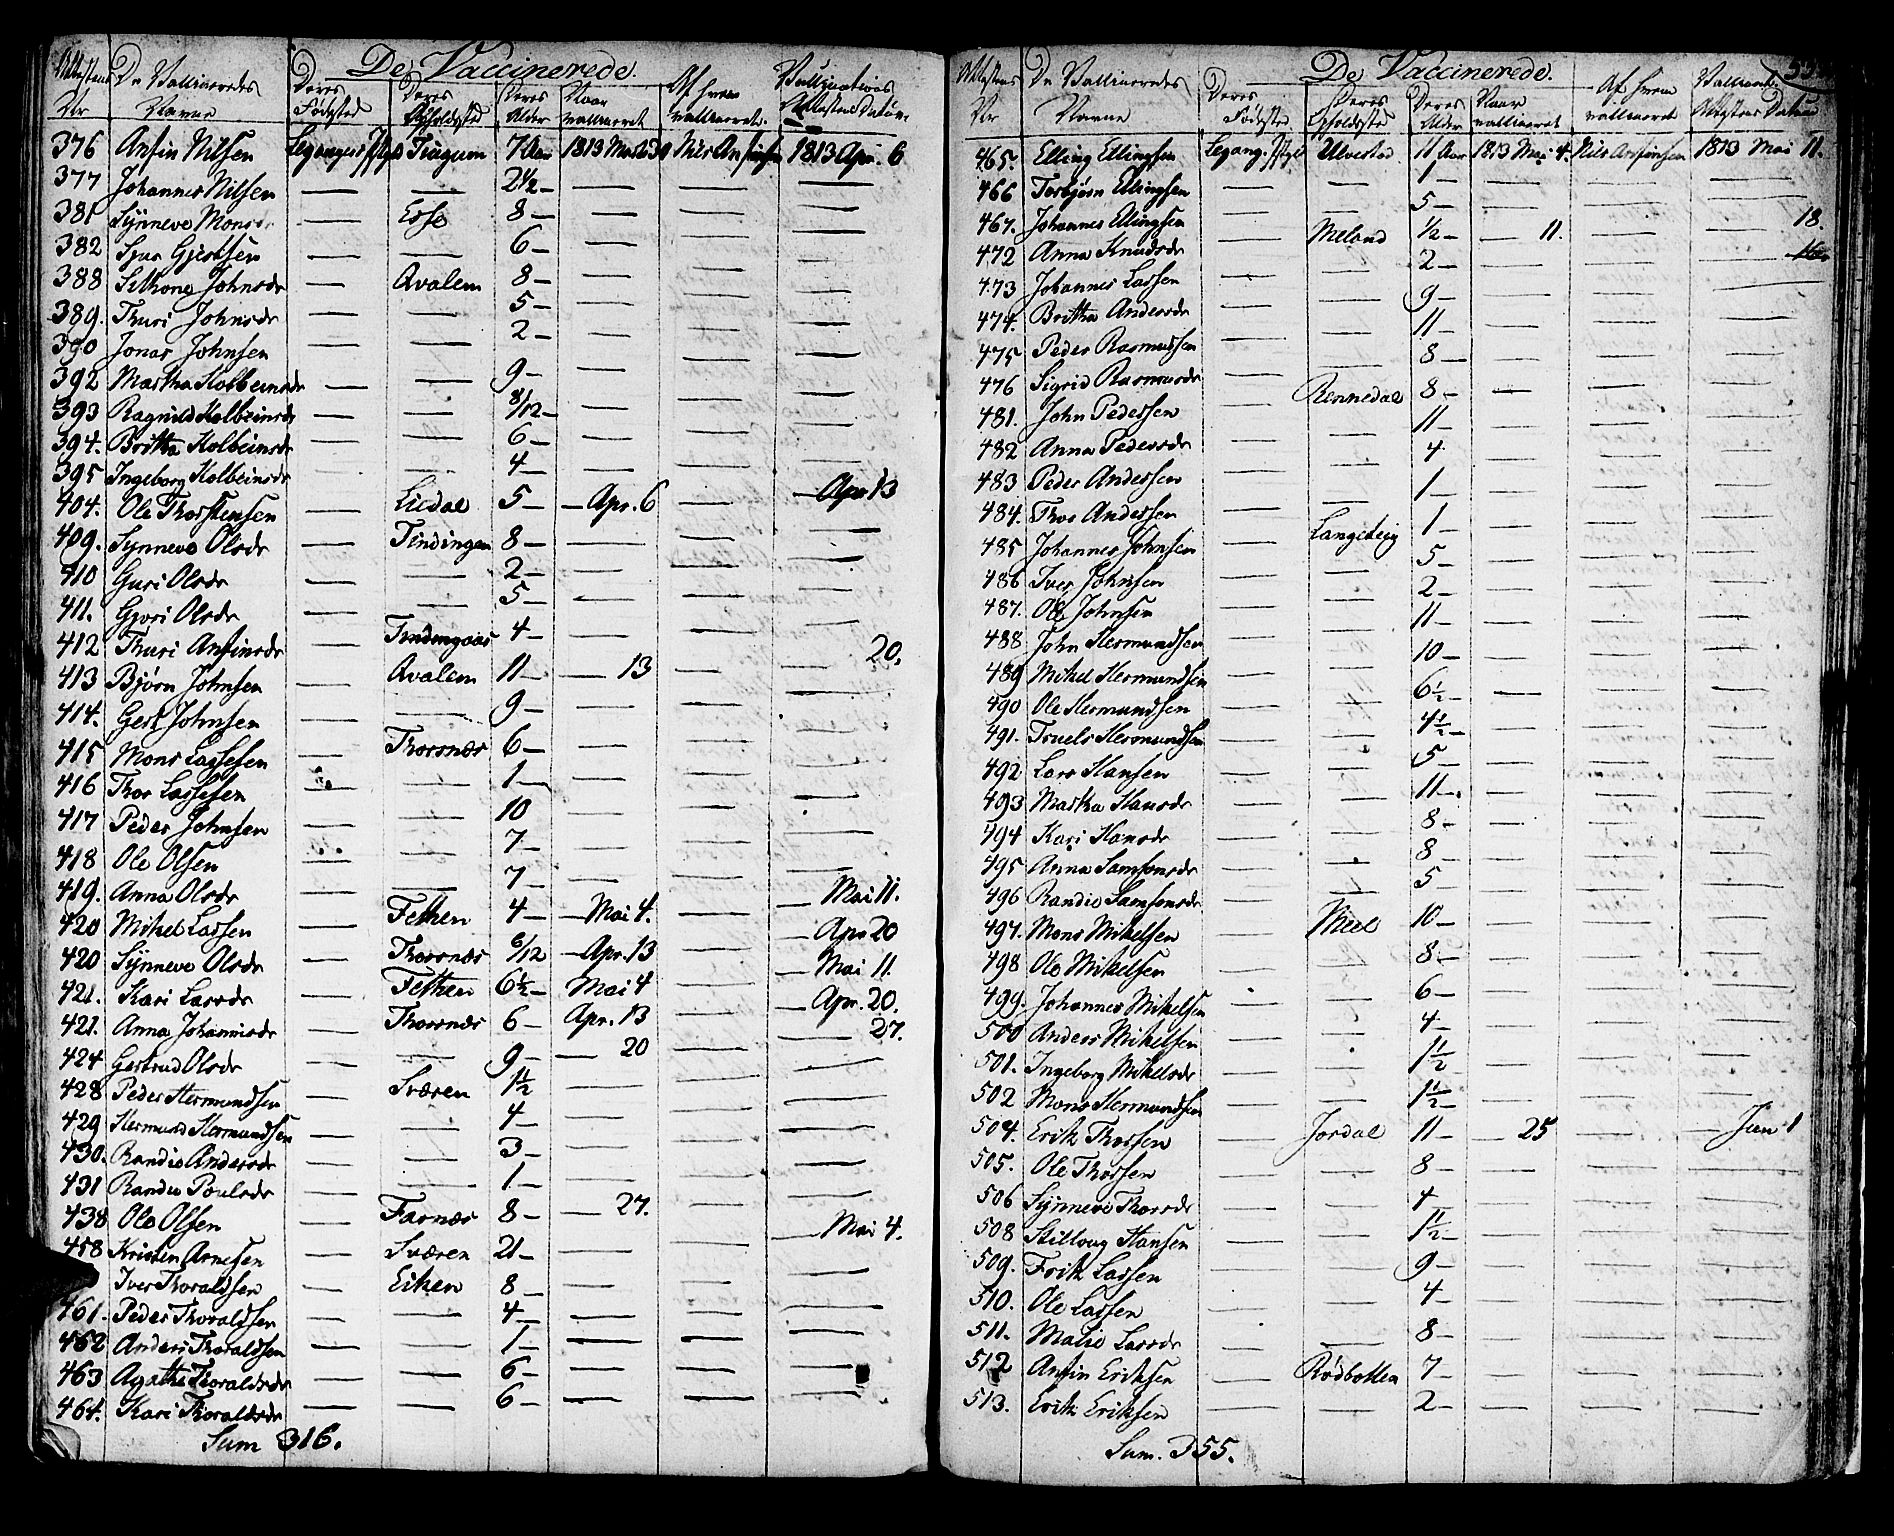 De Vaccinerede.
Attestens Nr | De Vaccineredes Navne | Deres Fødested | Deres Opholdssted | Deres Alder | Naar vaccineret | Af hvem vaccineret. | Vaccinations Attestens Datum
376 Anfin Nilsen Leganger Tiugum 7 Aar 1813 Nils Anfinsen 1813 Apr. 6
377 Johannes Nilsen — — 2½ — — — —
381 Synneve — Esse 8 — — — —
382 Siur Gjertsen — — 6 — — — —
388 Johnsdr — Qvalem 8 — — — —
389. Thuri Johnsdr — — 5 — — — —
390 Jonas Johnsen — — 2 — — — —
392 Martha Kolbeinsdr — — 9 — — — —
393 Ragnild Kolbeinsdr — — 8/12 — — — —
394. Britha Kolbeinsdr — — 6 — — — —
395 Ingeborg Kolbeinsdr — — 4 — — — —
404. Ole Thorstensen — Liedal 5 — — Apr. 6 — — Apr 13
409. Synneve Olsdr — Tindingen 8 — — — —
410 Guri Olsdr — — 2 — — — —
411. Gjøri Olsdr — — 5 — — — —
412 Thuri Anfinsdr — 4 — — — —
413 Bjørn Johnsen — Qvalem 11 — — 13 — — 20.
414. Gert Johnsen — — 9 — — — —
415 Mons Lassesen — Thorsnæs 6 — — — —
416 Thor Lassesen — 1 — — — —
417 Peder Johnsen — — 10 — — —
418 Ole Olsen — — 7 — — — —
419. Anna Olsdr — — 7 — — — —
420 Mikel Lassen — Fethen 4 — — Mai 4. — — Mai 11.
420 Synneve Olsdr — Thorsnæs 6/12 — Apr. 13 — — Apr 20
421. Kari Larsdr — Fethen 6½ — Mai 4 — — Mai 11.
421. Anna Johannisdr — Thorsnæs 6 — Apr. 13 — — Apr. 20.
424 Gertrud Olsdr — — 9 — — 20 — — 27.
428 Peder Hermundsen — Sværen 1½ — — —
429 Hermund Hermundsen — — 4 — — — —
430. Randie Andersdr — — 3 — — — —
431 Randie Poulsdr — — 1 — — — —
438 Ole Olsen — Farnæs 8 — — 27. — — Mai 4.
458 Kristen Arnesen — Sværen 21 — — — —
Iver Thoraldsen — Eiken 8 — — —
461. Peder Thoraldsen — — 4 — — — —
462 Anders Thoraldsen — — 1 — — — —
463 Agathe Thoraldsdr — — 6 — — — —
464. Kari Thoraldsdr — — 6 — — — —
Sum 316.
De Vaccinerede.
Attestens Nr | De Vaccineredes Navne | Deres Fødested | Deres Opholdssted | Deres Alder | Naar vaccineret | Af hvem vaccineret | Vaccinat. Attestens Datum
465. Elling Ellingsen Legang. Ulvestad 11 Aar 1813 Mai 4. Nils Anfinsen 1813 Mai 11.
466 Torbjørn Ellingsen — — 1 — — — —
467. Johannes Ellingsen — — 5 — — — —
472 Anna Knudsdr — Meland ½ — — 11. — 18.
473 Johannes Lassen — — 2 — — —
474. Britha Andersdr — — 9 — — — —
475 Peder Rasmussen — — 11 — — — —
476 Sigrid Rasmusdr — — 8 — — — —
481. John Pedersen — Rennedal 8 — — — —
482 Anna Pedersdr — — 11 — — — —
483 Peder Andersen — — 4 — — —
484. Thor Andersen — — 1 — — — —
485 Johannes Johnsen — Langeteig 1 — — — —
486 Iver Johnsen — — 5 — — — —
487. Ole Johnsen — — 2 — — — —
488 John Hermundsen — — 11 — — — —
489 Mikel Hermundsen — — 10 — — — —
490 Ole Hermundsen — — 6½ — — — —
491. Truels Hermundsen — — 4½ — — — —
492 Lars Hansen — — 5 — — — —
493 Martha Hansdr — — 11 — — — —
494 Kari Hansdr — — 8 — — — —
495 Anna Samsonsdr — — 8 — — — —
496 Randie Samsonsdr — — 5 — — — —
497. Mons Mikelsen — Meel 10 — — — —
498 Ole Mikelsen — — 8 — — — —
499. Johannes Mikelsen — — 6 — — — —
500 Anders Mikelsen — — 4 — — — —
501. Ingeborg Mikelsdr — — 1½ — — —
502 Mons Hermundsen — — 1½ — — — —
504. Erik Thorsen — Jordal 11 — — 25 — — Jun 1
505. Ole Thorsen — — 8 — — — —
506 Synneve Thorsdr — — 4 — — — —
508 Hansen — — 1½ — — — —
509. Lassen — — 9 — — — —
510. Ole Lassen — — 4 — — — —
511. Malie Larsdr — — 8 — — — —
512 Anfin Eriksen — Rødbotten 7 — — — —
513. Erik Eriksen — — 2 — — — —
Sum. 355.